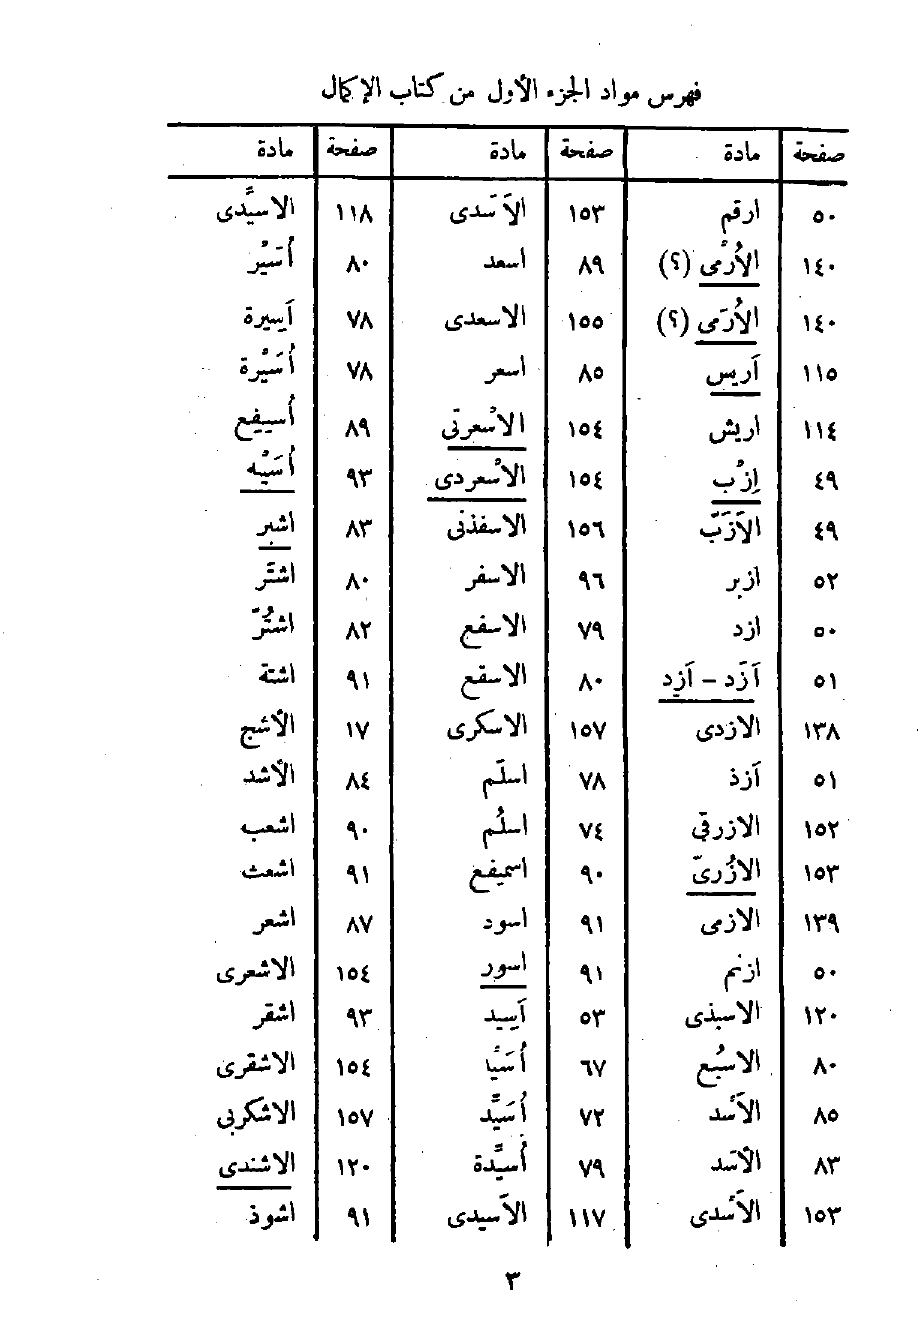 فهرس مواد الجزء الأول من كتاب الإكمال
صفحة مادة صفحة مادة صفحة مادة
٥٠ ارقم ١٥٣ الاَسَدى ١١٨ الاسيِّدى
١٤٠ الاُرْمى (؟) ٨٩ اسعد ٨٠ اُسَيْر
١٤٠ الاُرَمى (؟) ١٥٥ الاسعدى ٧٨ اَسِيرة
١١٥ اَريس ٨٥ اسعر ٧٨ اُسَيْرة
١١٤ اريش ١٥٤ الاسْعرتى ٨٩ اُسيفع
٤٩ اِزْب ١٥٤ الاسْعردى ٩٣ اُسَيْه
٤٩ الاَزَبّ ١٥٦ الاسفذنى ٨٣ اشبر
٥٢ ازبر ٩٦ الاسفر ٨٠ اشتَر
٥٠ ازد ٧٩ الاسفع ٨٢ اشتُرّ
٥١ اَزَد – اَزِد ٨٠ الاسقع ٩١ اشتة
١٣٨ الازدى ١٥٧ الاسكرى ١٧ الأشج
٥١ اَزذ ٧٨ اسلَم ٨٤ الأشد
١٥٢ الازرقى ٧٤ اسلُم ٩٠ اشعب
١٥٣ الازُرىّ ٩٠ اسميفع ٩١ اشعث
١٣٩ الازمى ٩١ اسود ٨٧ اشعر
٥٠ ازنم ٩١ اسور ١٥٤ الاشعرى
١٢٠ الاسبذى ٥٣ اَسِيد ٩٣ اشقر
٨٠ الاسبُع ٦٧ اُسَيْا ١٥٤ الاشقرى
٨٥ الاَسْد ٧٢ اُسَيِّد ١٥٧ الاشكربى
٨٣ الأسَد ٧٩ اُسيِّدة ١٢٠ الاشندى
١٥٣ الاَسْدى ١١٧ الاَسيدى ٩١ اشوذ
٣